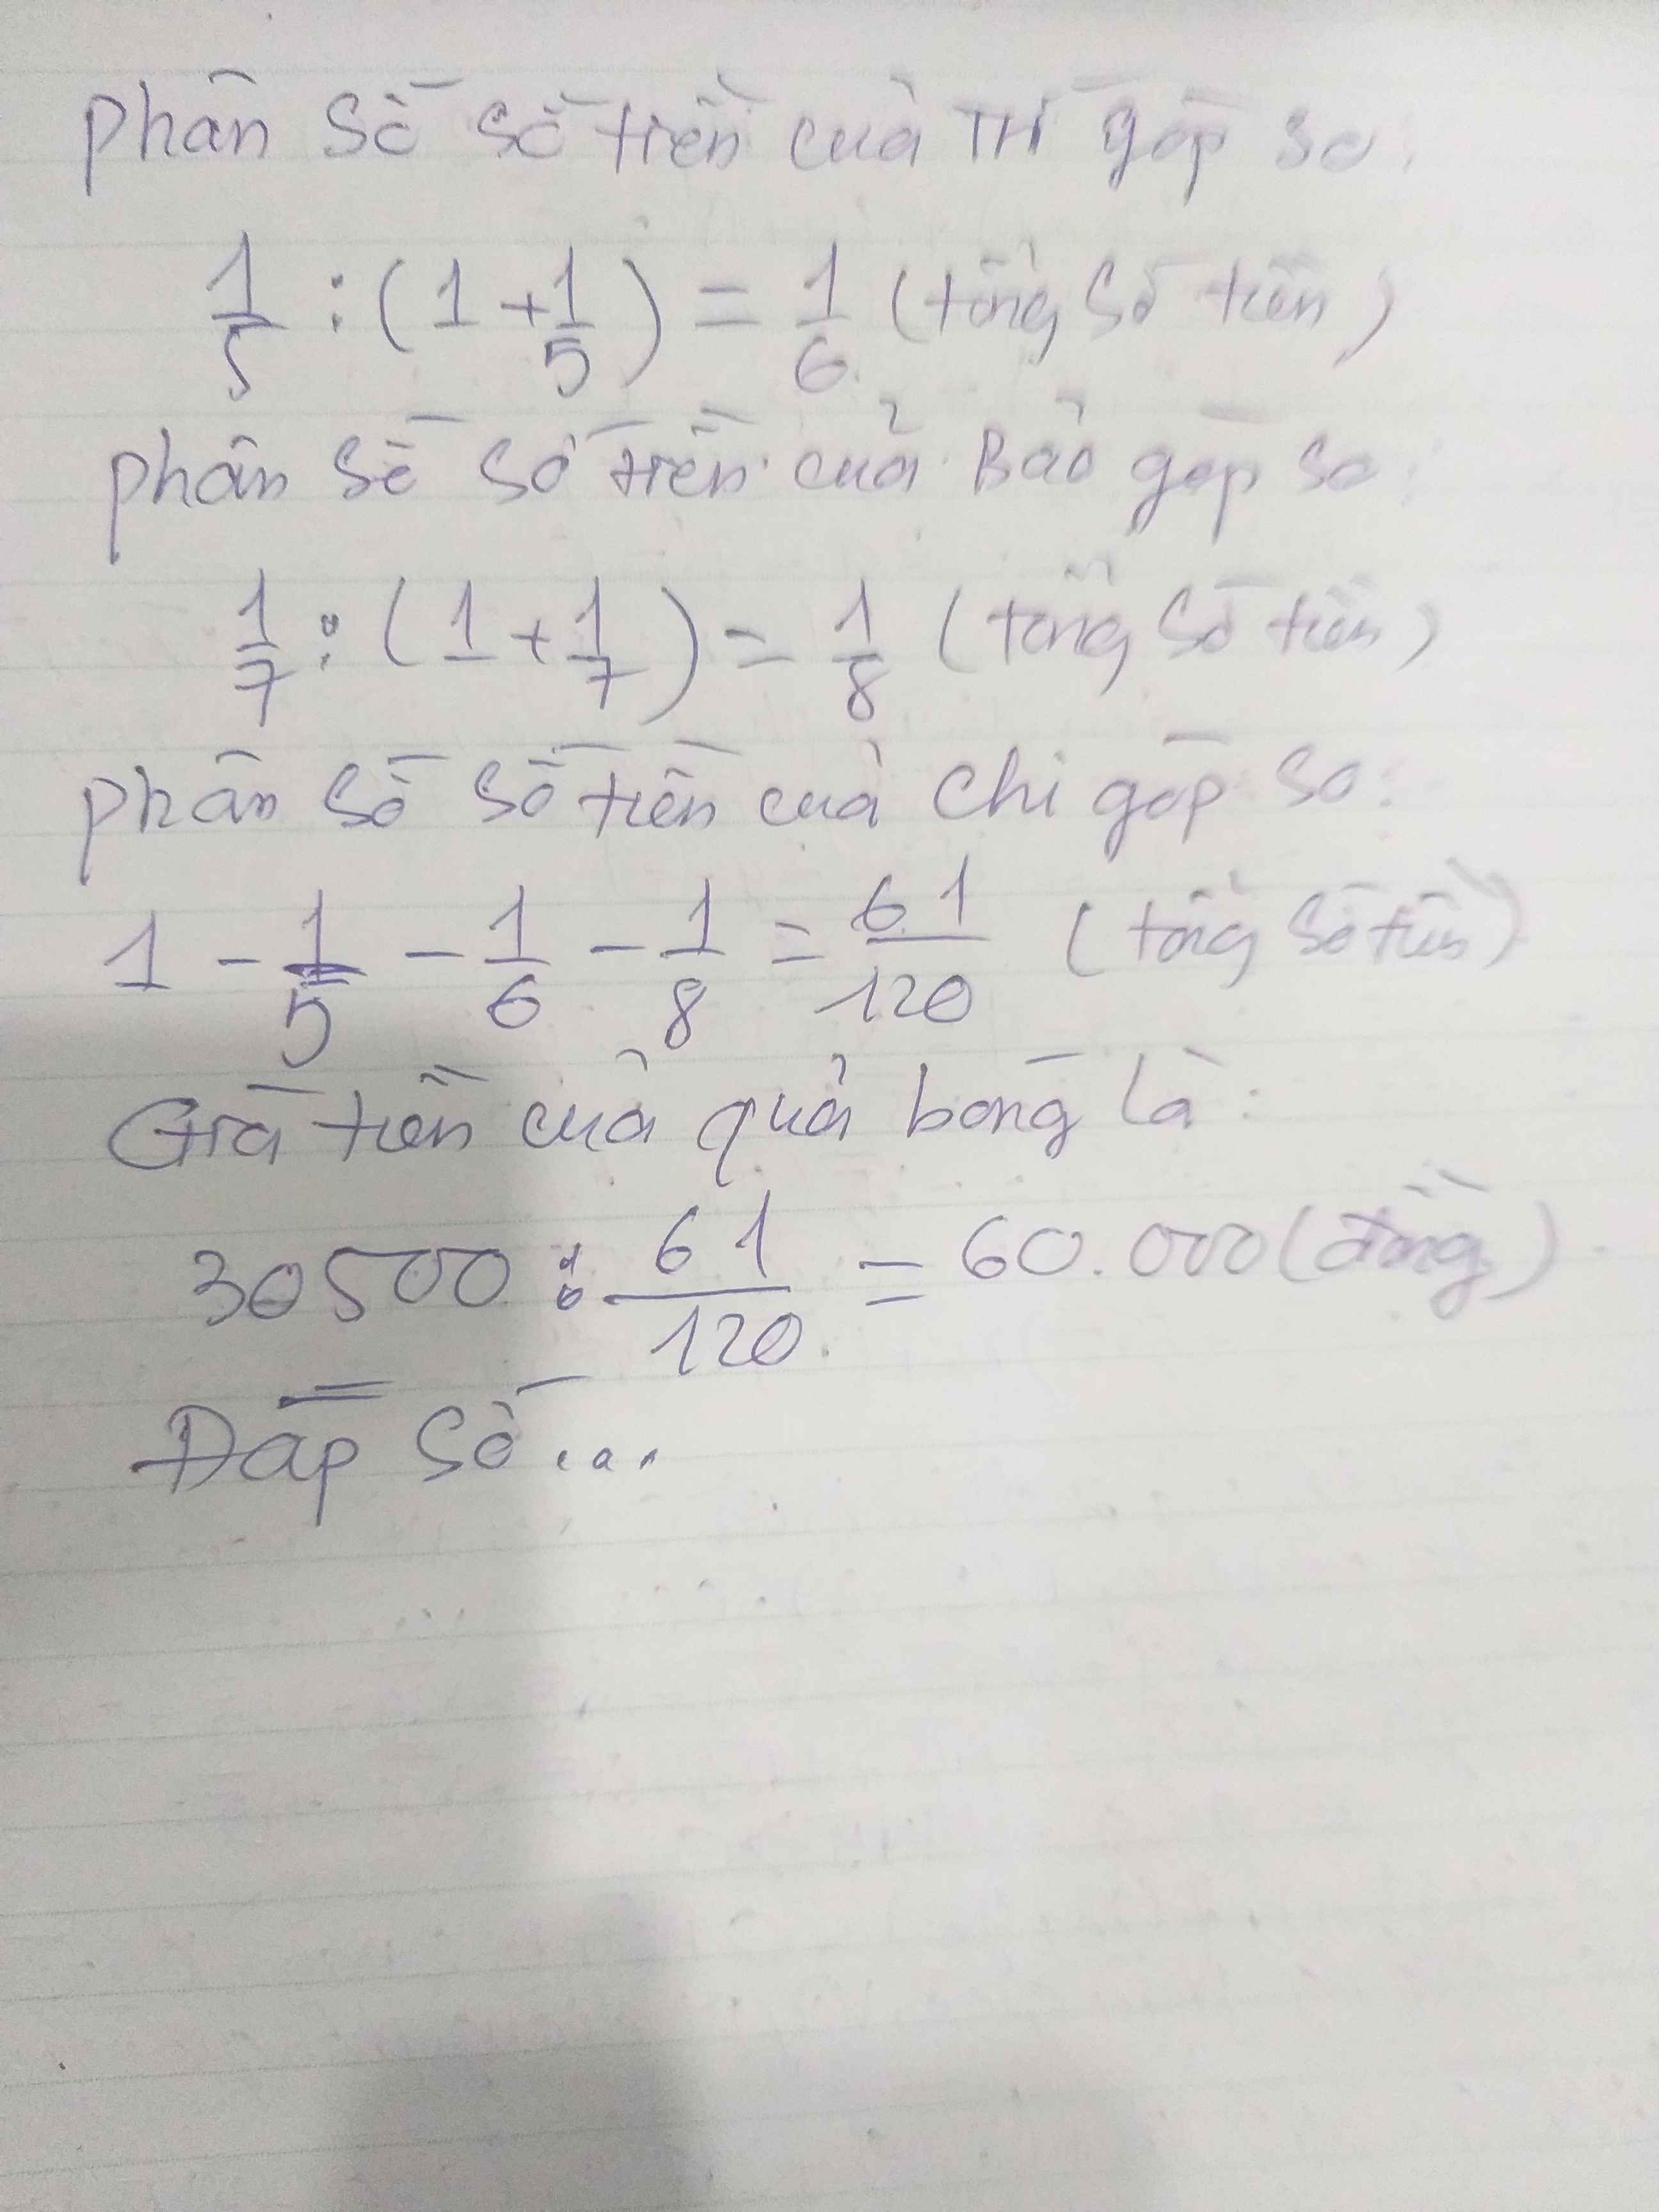 phân số số tiền của Trí góp so:
1/5 : (1 + 1/5) = 1/6 (tổng số tiền)
phân số số tiền của Bảo góp so:
1/7 : (1 + 1/7) = 1/8 (tổng số tiền)
phân số số tiền của chi góp so:
1 - 1/5 - 1/6 - 1/8 = 61/120 (tổng số tiền)
Giá tiền của quả bóng là:
30500 : 61/120 = 60.000 (đồng)
Đáp số...